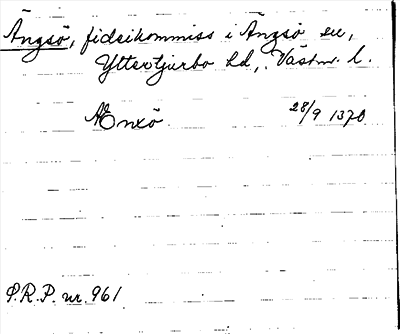 Ängsö, fideikommiss i Ängsö sn,
Yttertjurbo hd, Västm. l.
Ænxö 28/9 1370
S.R.P. nr. 961